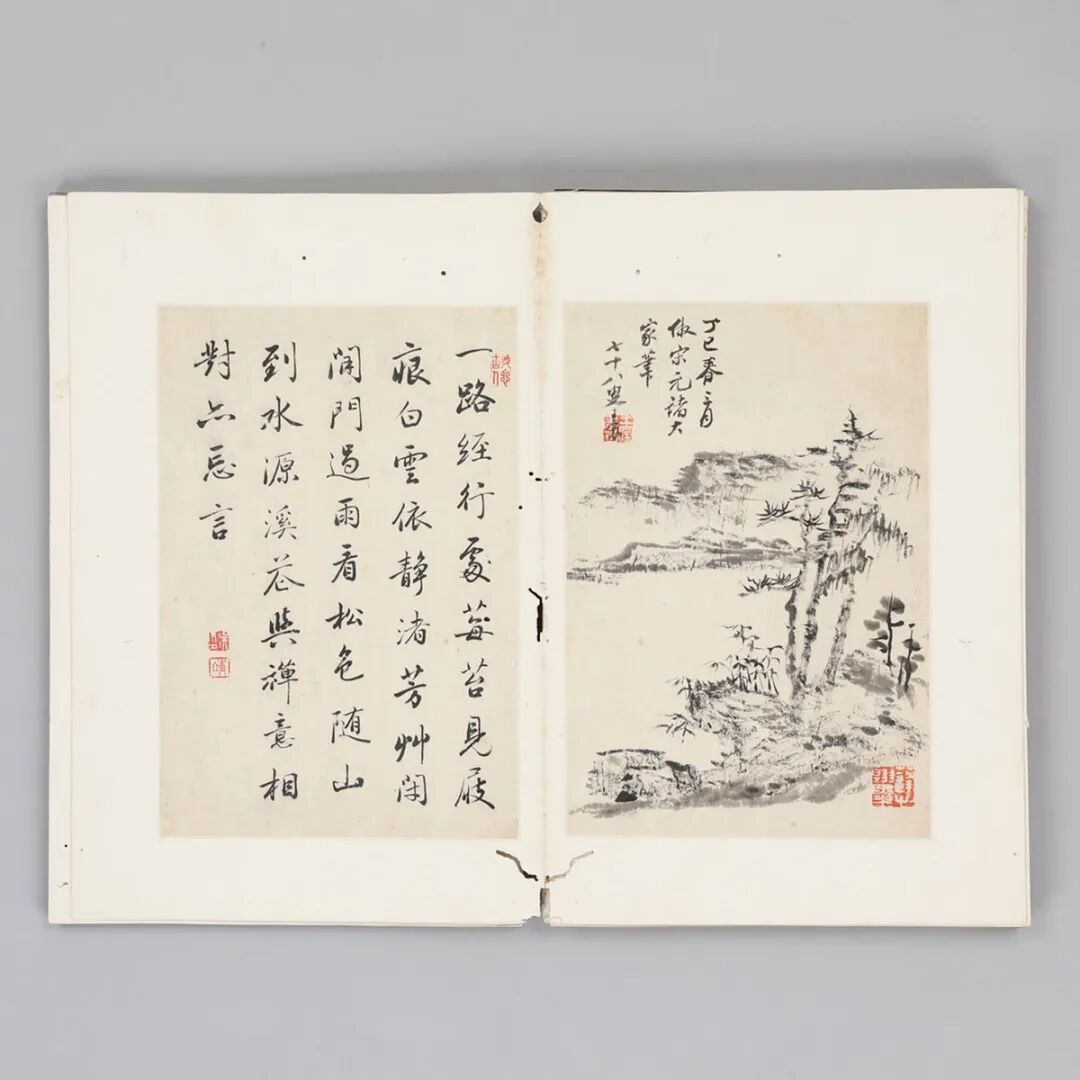 丁巳春三月
倣宋元諸大
家筆
七十八叟王
一路経行處莓苔見屐
痕白雲依靜渚芳艸閉
閑門過雨看松色随山
到水源溪花與禪意相
對亦忘言